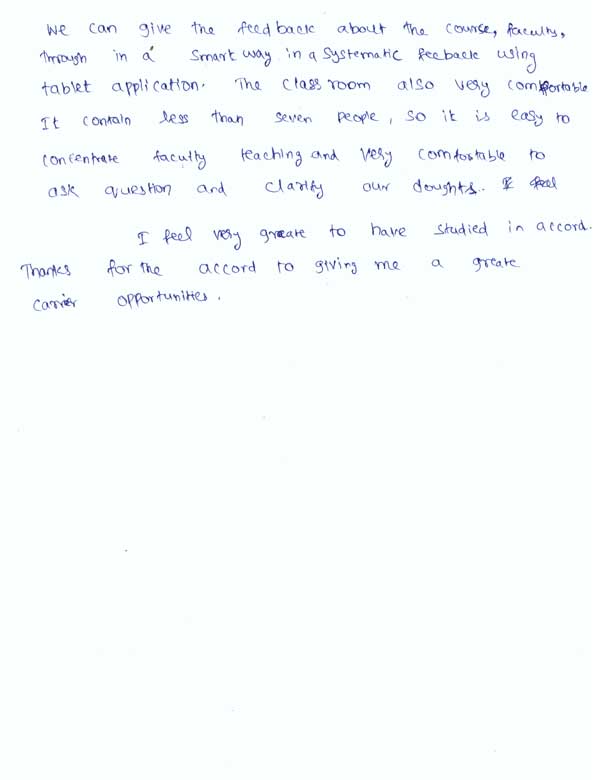 We can give the feedback about the course, faculty,
through in a smart way in a systematic feeback using
tablet application. The class room also very comfortable
It contain less than seven people, so it is easy to
concentrate faculty teaching and very comfortable to
ask question and clarify our doughts. I feel
I feel very greate to have studied in accord.
Thanks for the accord to giving me a greate
carrier opportunities.